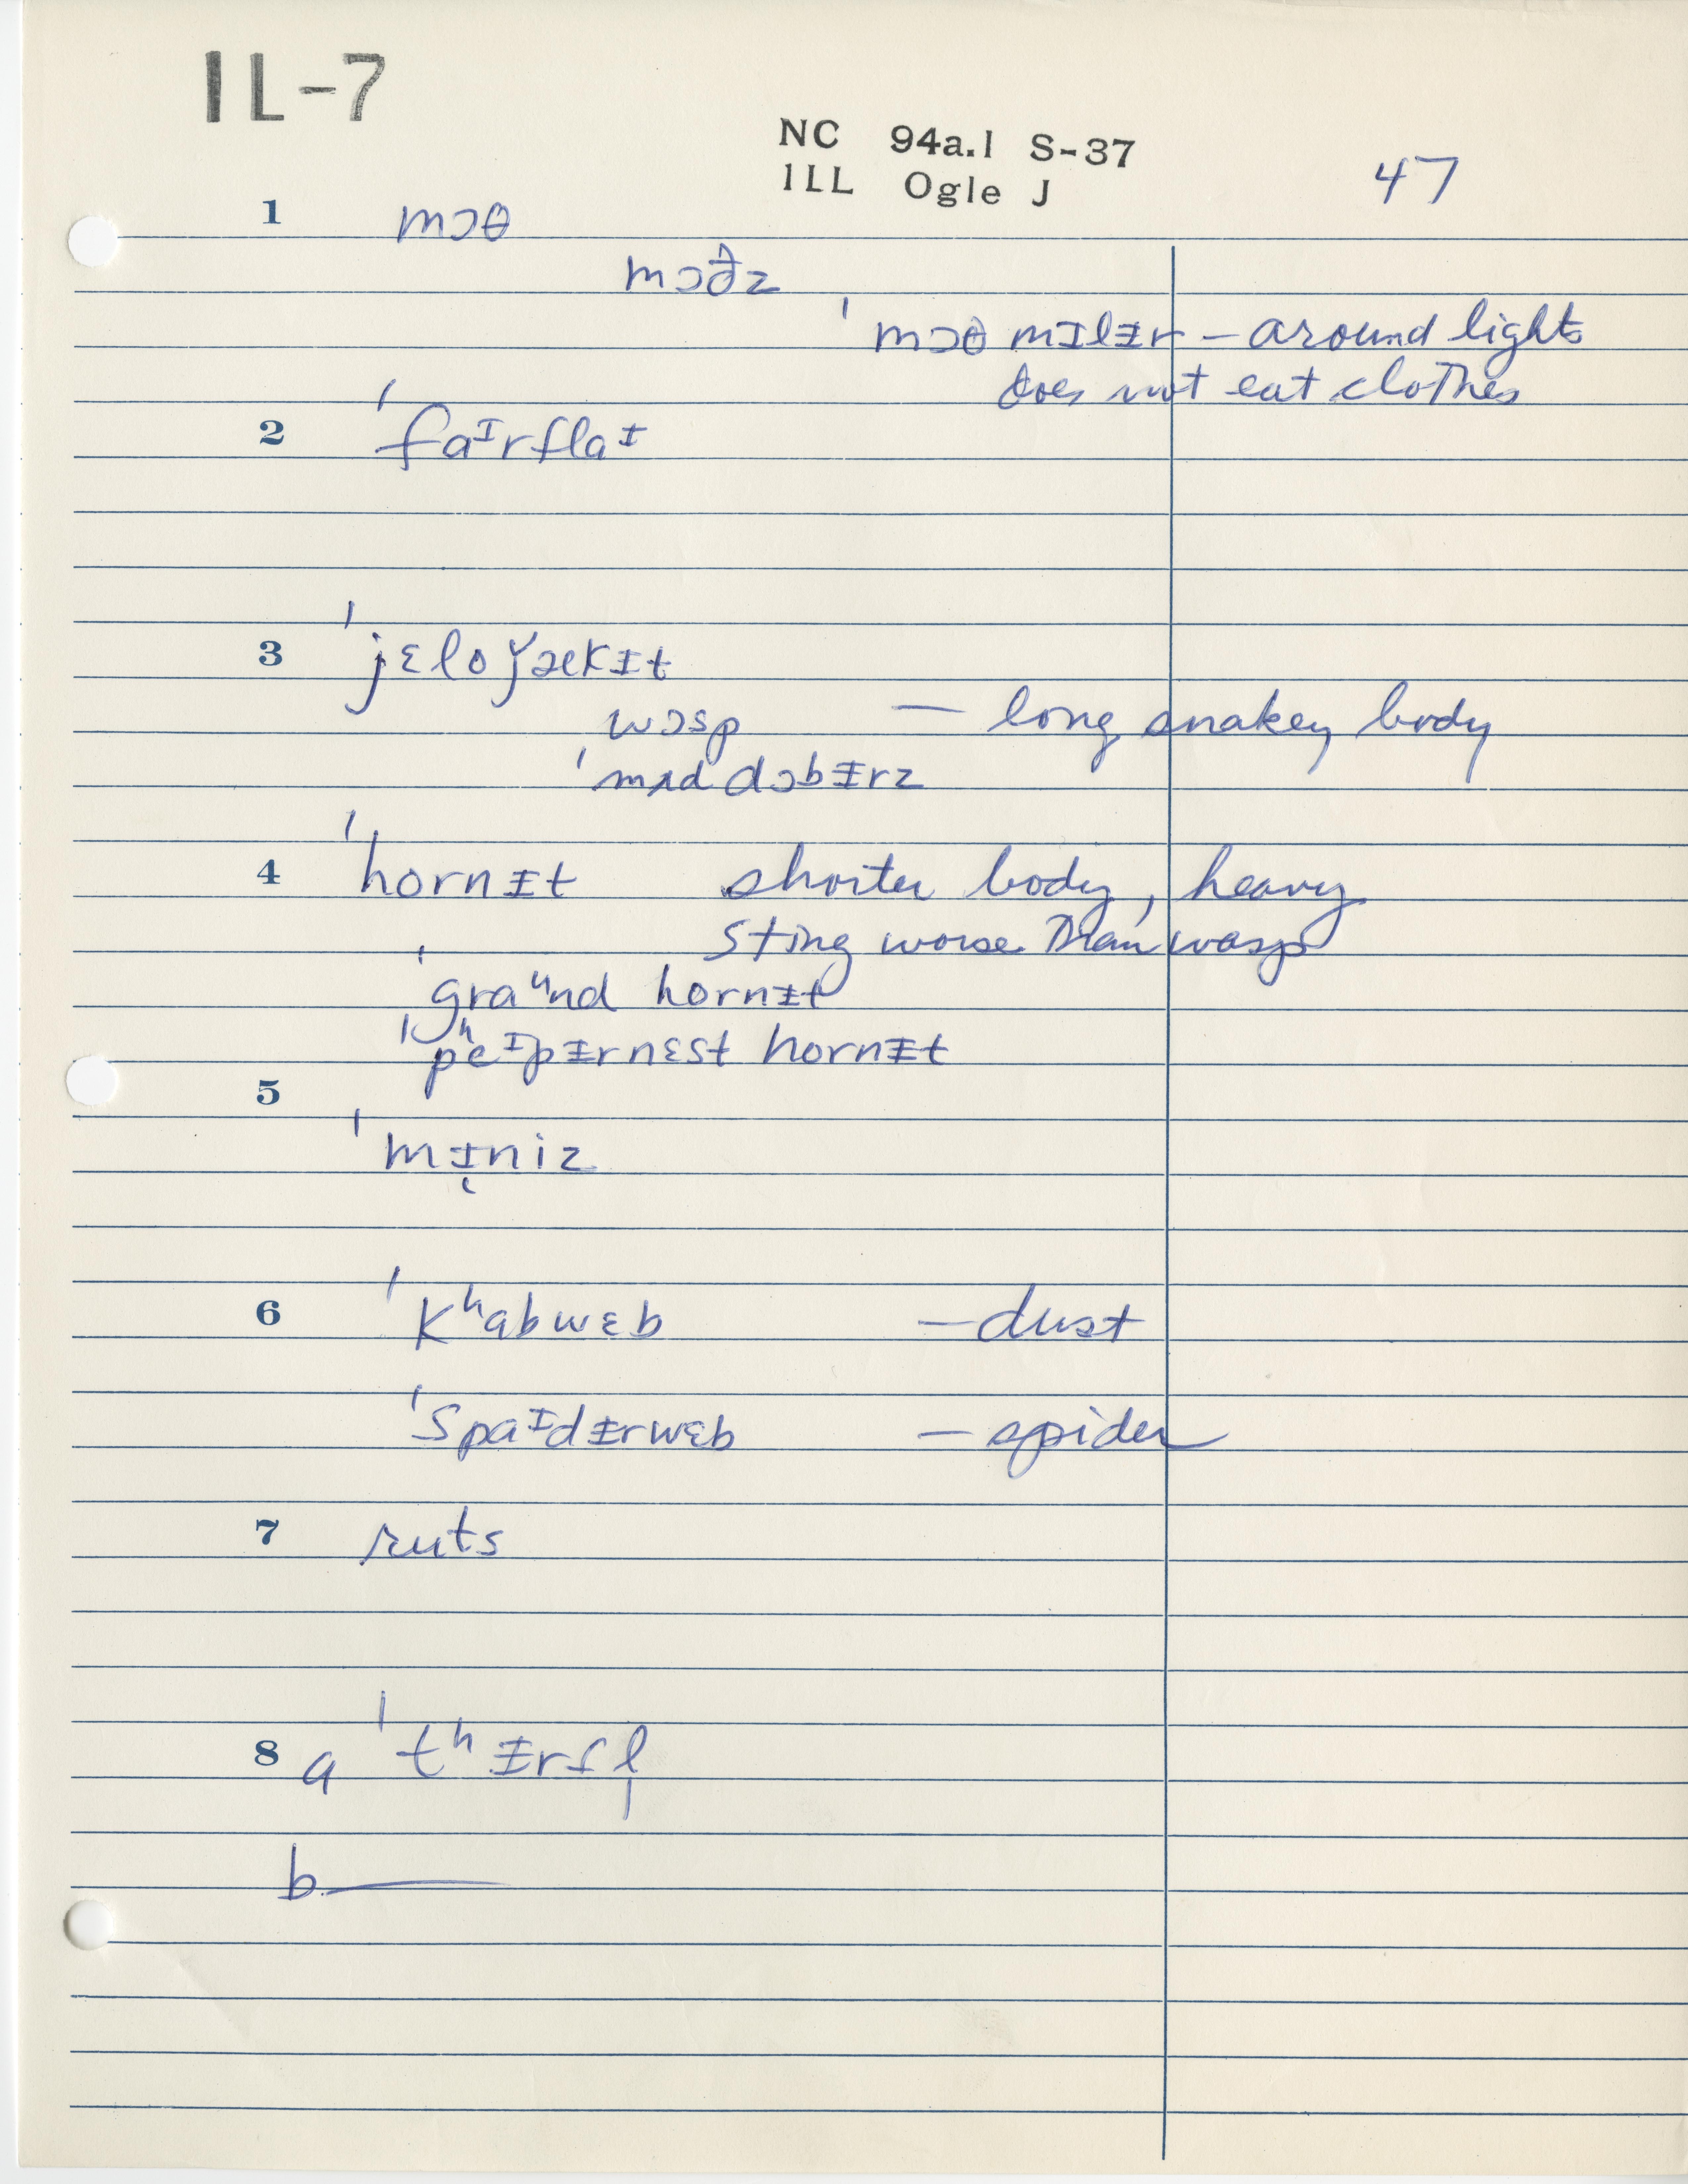 IL-7
NC 94a.1 S-37
ILL Ogle J
47
1 mɔθ
mɔðz
ˈmɔθ mɪlɨr – around lights
does not eat clothes
2 ˈfaᴵrflaᴵ
3 ˈjɛloǰækɨt
wɔsp — long snakey body
ˈmʌd dɔbɨrz
4 ˈhornɨt shorter body, heavy
sting worse than wasp
ˈgraᵘnd hornɨt
ˈpʰeᴵpɨrnɛst hornɨt
5
ˈmɪ̨niz
6 ˈkʰabwɛb — dust
ˈspaᴵdɨrwɛb — spider
7 ruts
8 a ˈtʰɨrsl̩
b —